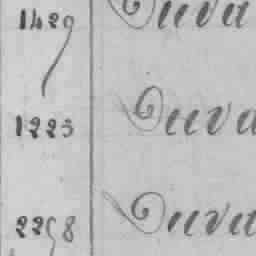 1429 Duva
1225 Duva
2298 Duva